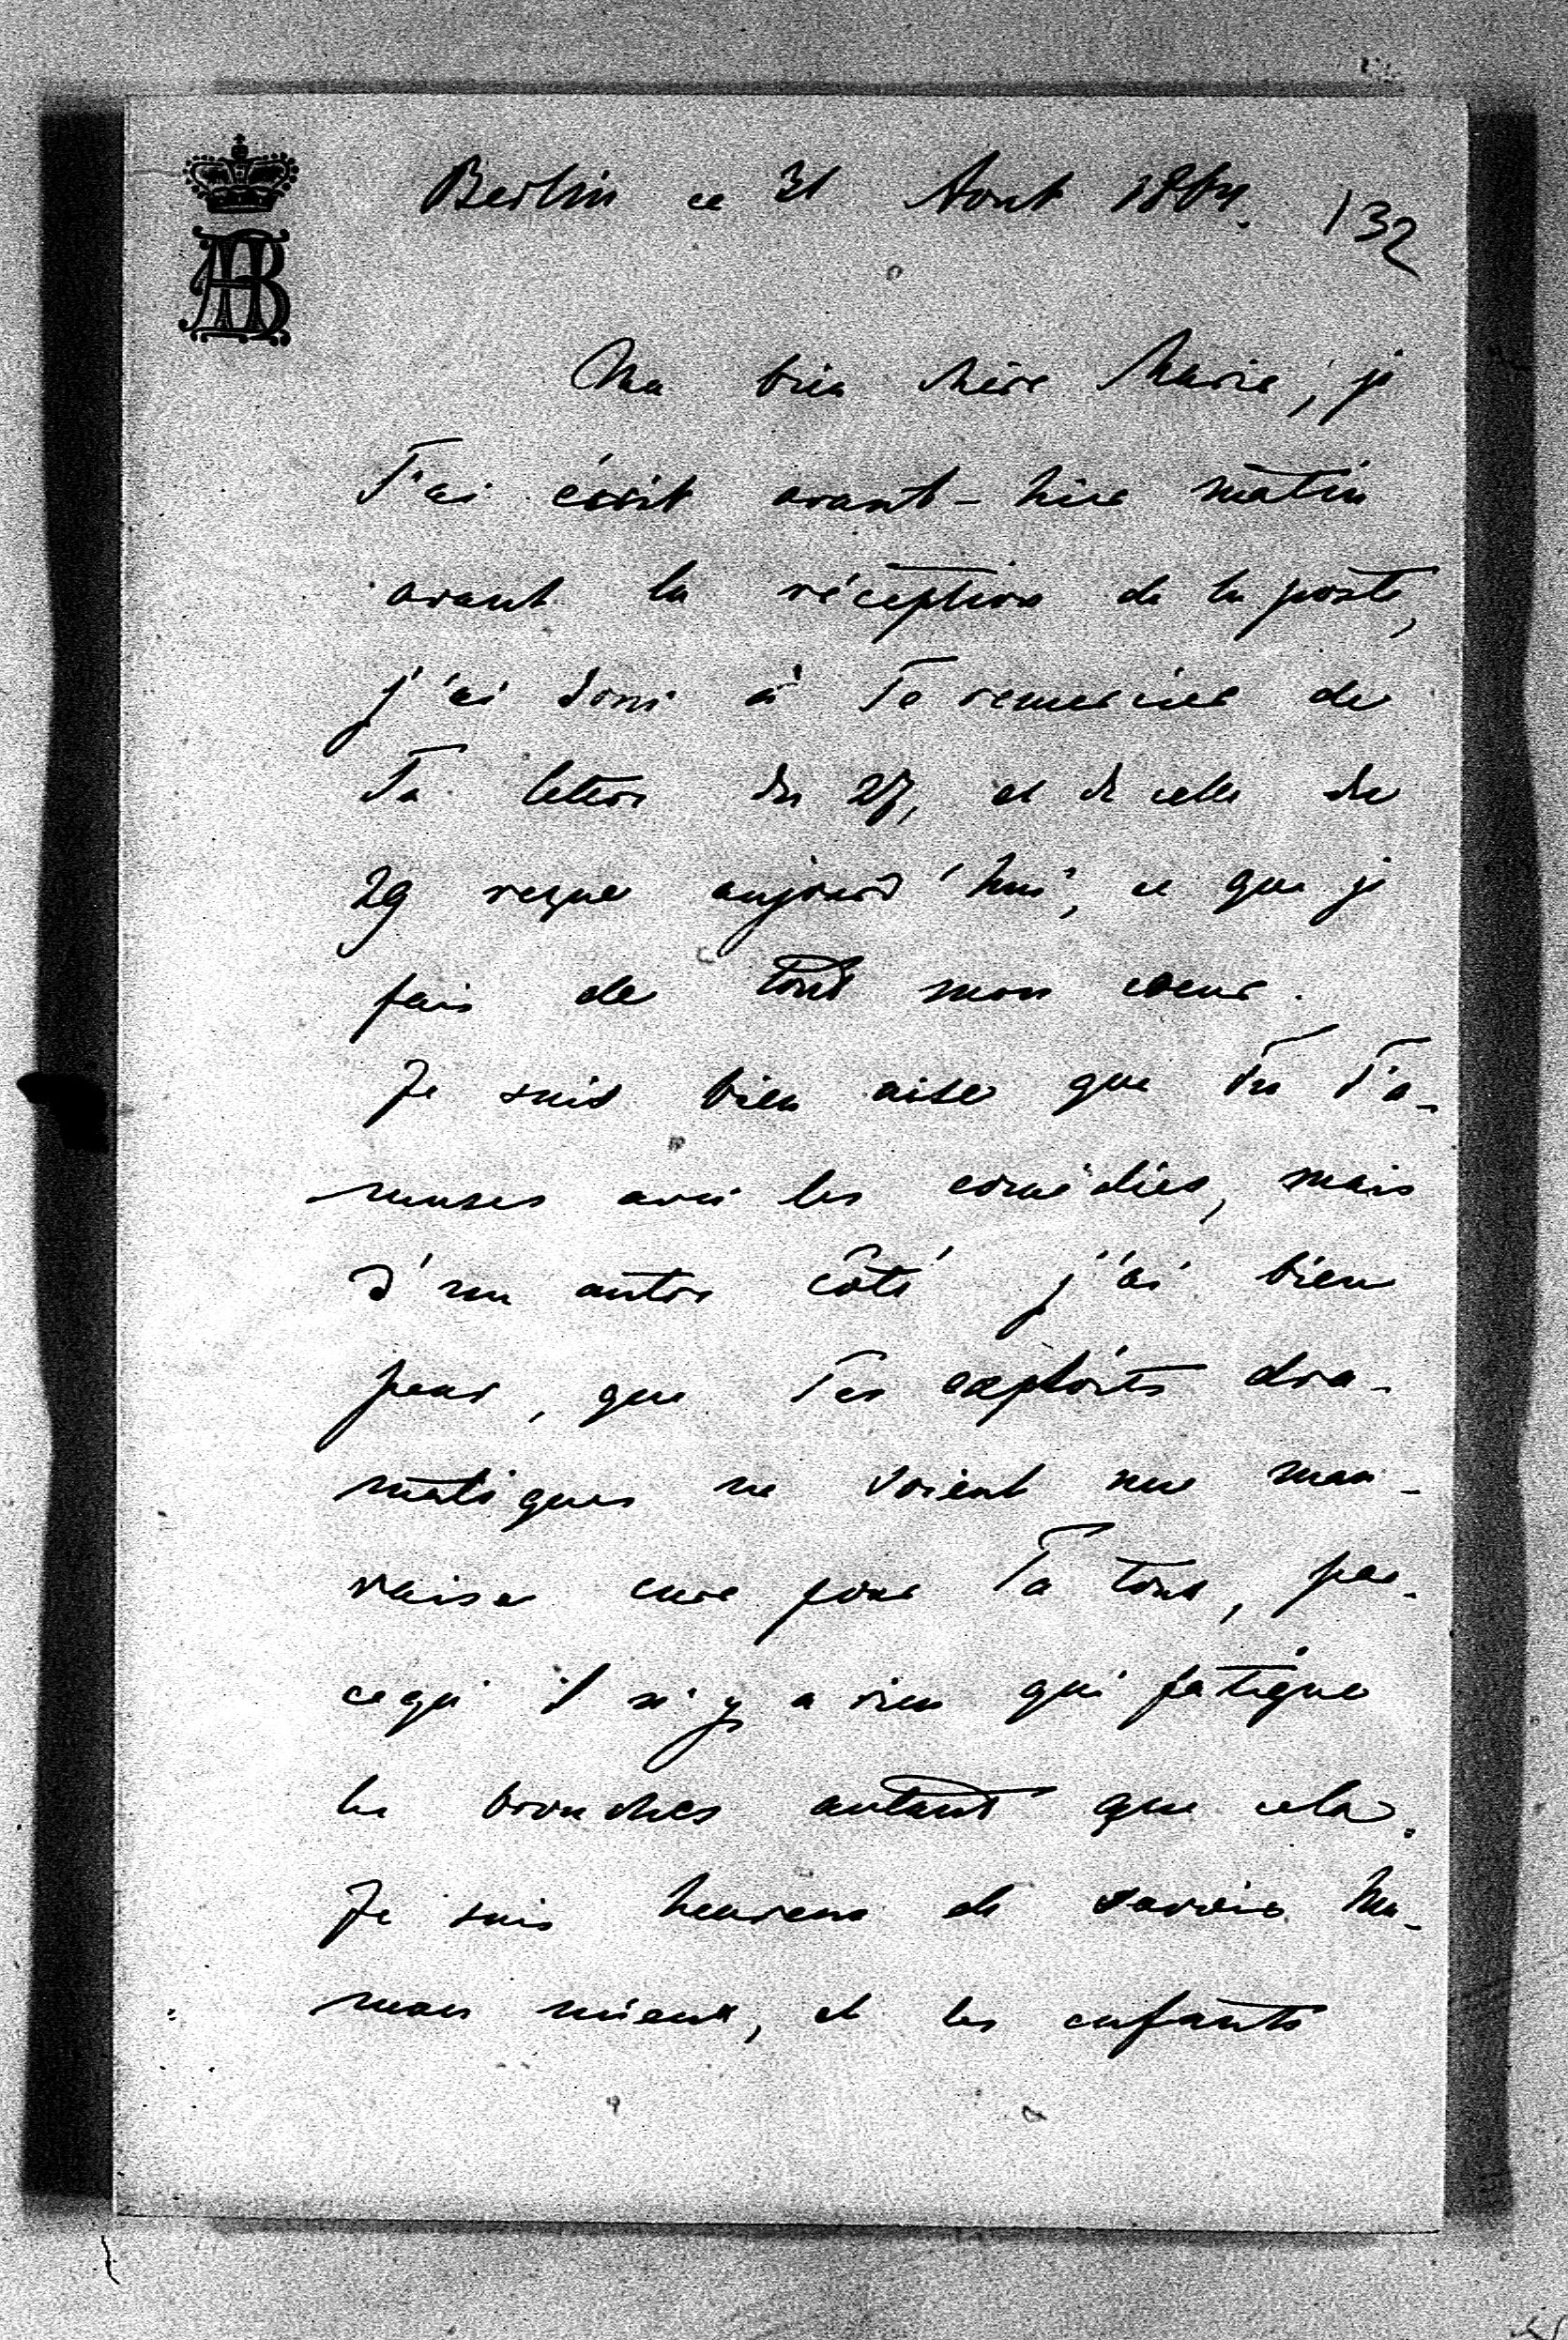 Berlin ce 31 Aout 1864. 132
AB
Ma bien chère Marie, je
T'ai écrit avant-hier matin
avant la réception de la poste,
j'ai donc à Te remercier de
Ta lettre du 27, et de celle du
29 reçue aujourd'hui, ce que je
fais de tout mon coeur.
Je suis bien aise que Tu T'a-
muses avec les comédies, mais
d'un autre côté j'ai bien
peur, que Tes exploits dra-
matiques ne soient une mau-
vaise cure pour Ta toux, par-
cequ'il n'y a rien qui fatigue
les bronches autant que cela.
Je suis heureux de savoir Ma-
man mieux, et les enfants